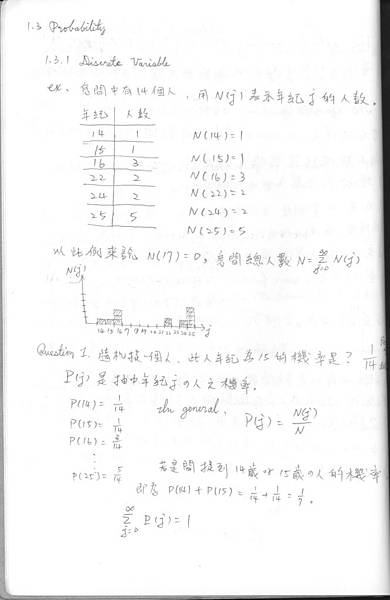 1.3 Probability
1.3.1 Discrete Variable
ex. 房間中有14個人，用N(j)表示年紀j的人數。
年紀 人數
14 1 N(14)=1
15 1 N(15)=1
16 3 N(16)=3
22 2 N(22)=2
24 2 N(24)=2
25 5 N(25)=5
以此例來說 N(17)=0，房間總人數 N=∑_{j=0}^{∞} N(j)
N(j)
14 15 16 17 18 19 20 21 22 23 24 25 j
Question 1. 隨機找一個人，此人年紀為15的機率是？ 1/14
P(j) 是抽中年紀j的人之機率。
P(14)= 1/14 In general,
P(15)= 1/14 P(j) = N(j)/N
P(16)= 3/14
⋮
P(25)= 5/14 若是問找到14歲or15歲的人的機率
即為 P(14)+P(15) = 1/14 + 1/14 = 1/7。
∑_{j=0}^{∞} P(j)=1